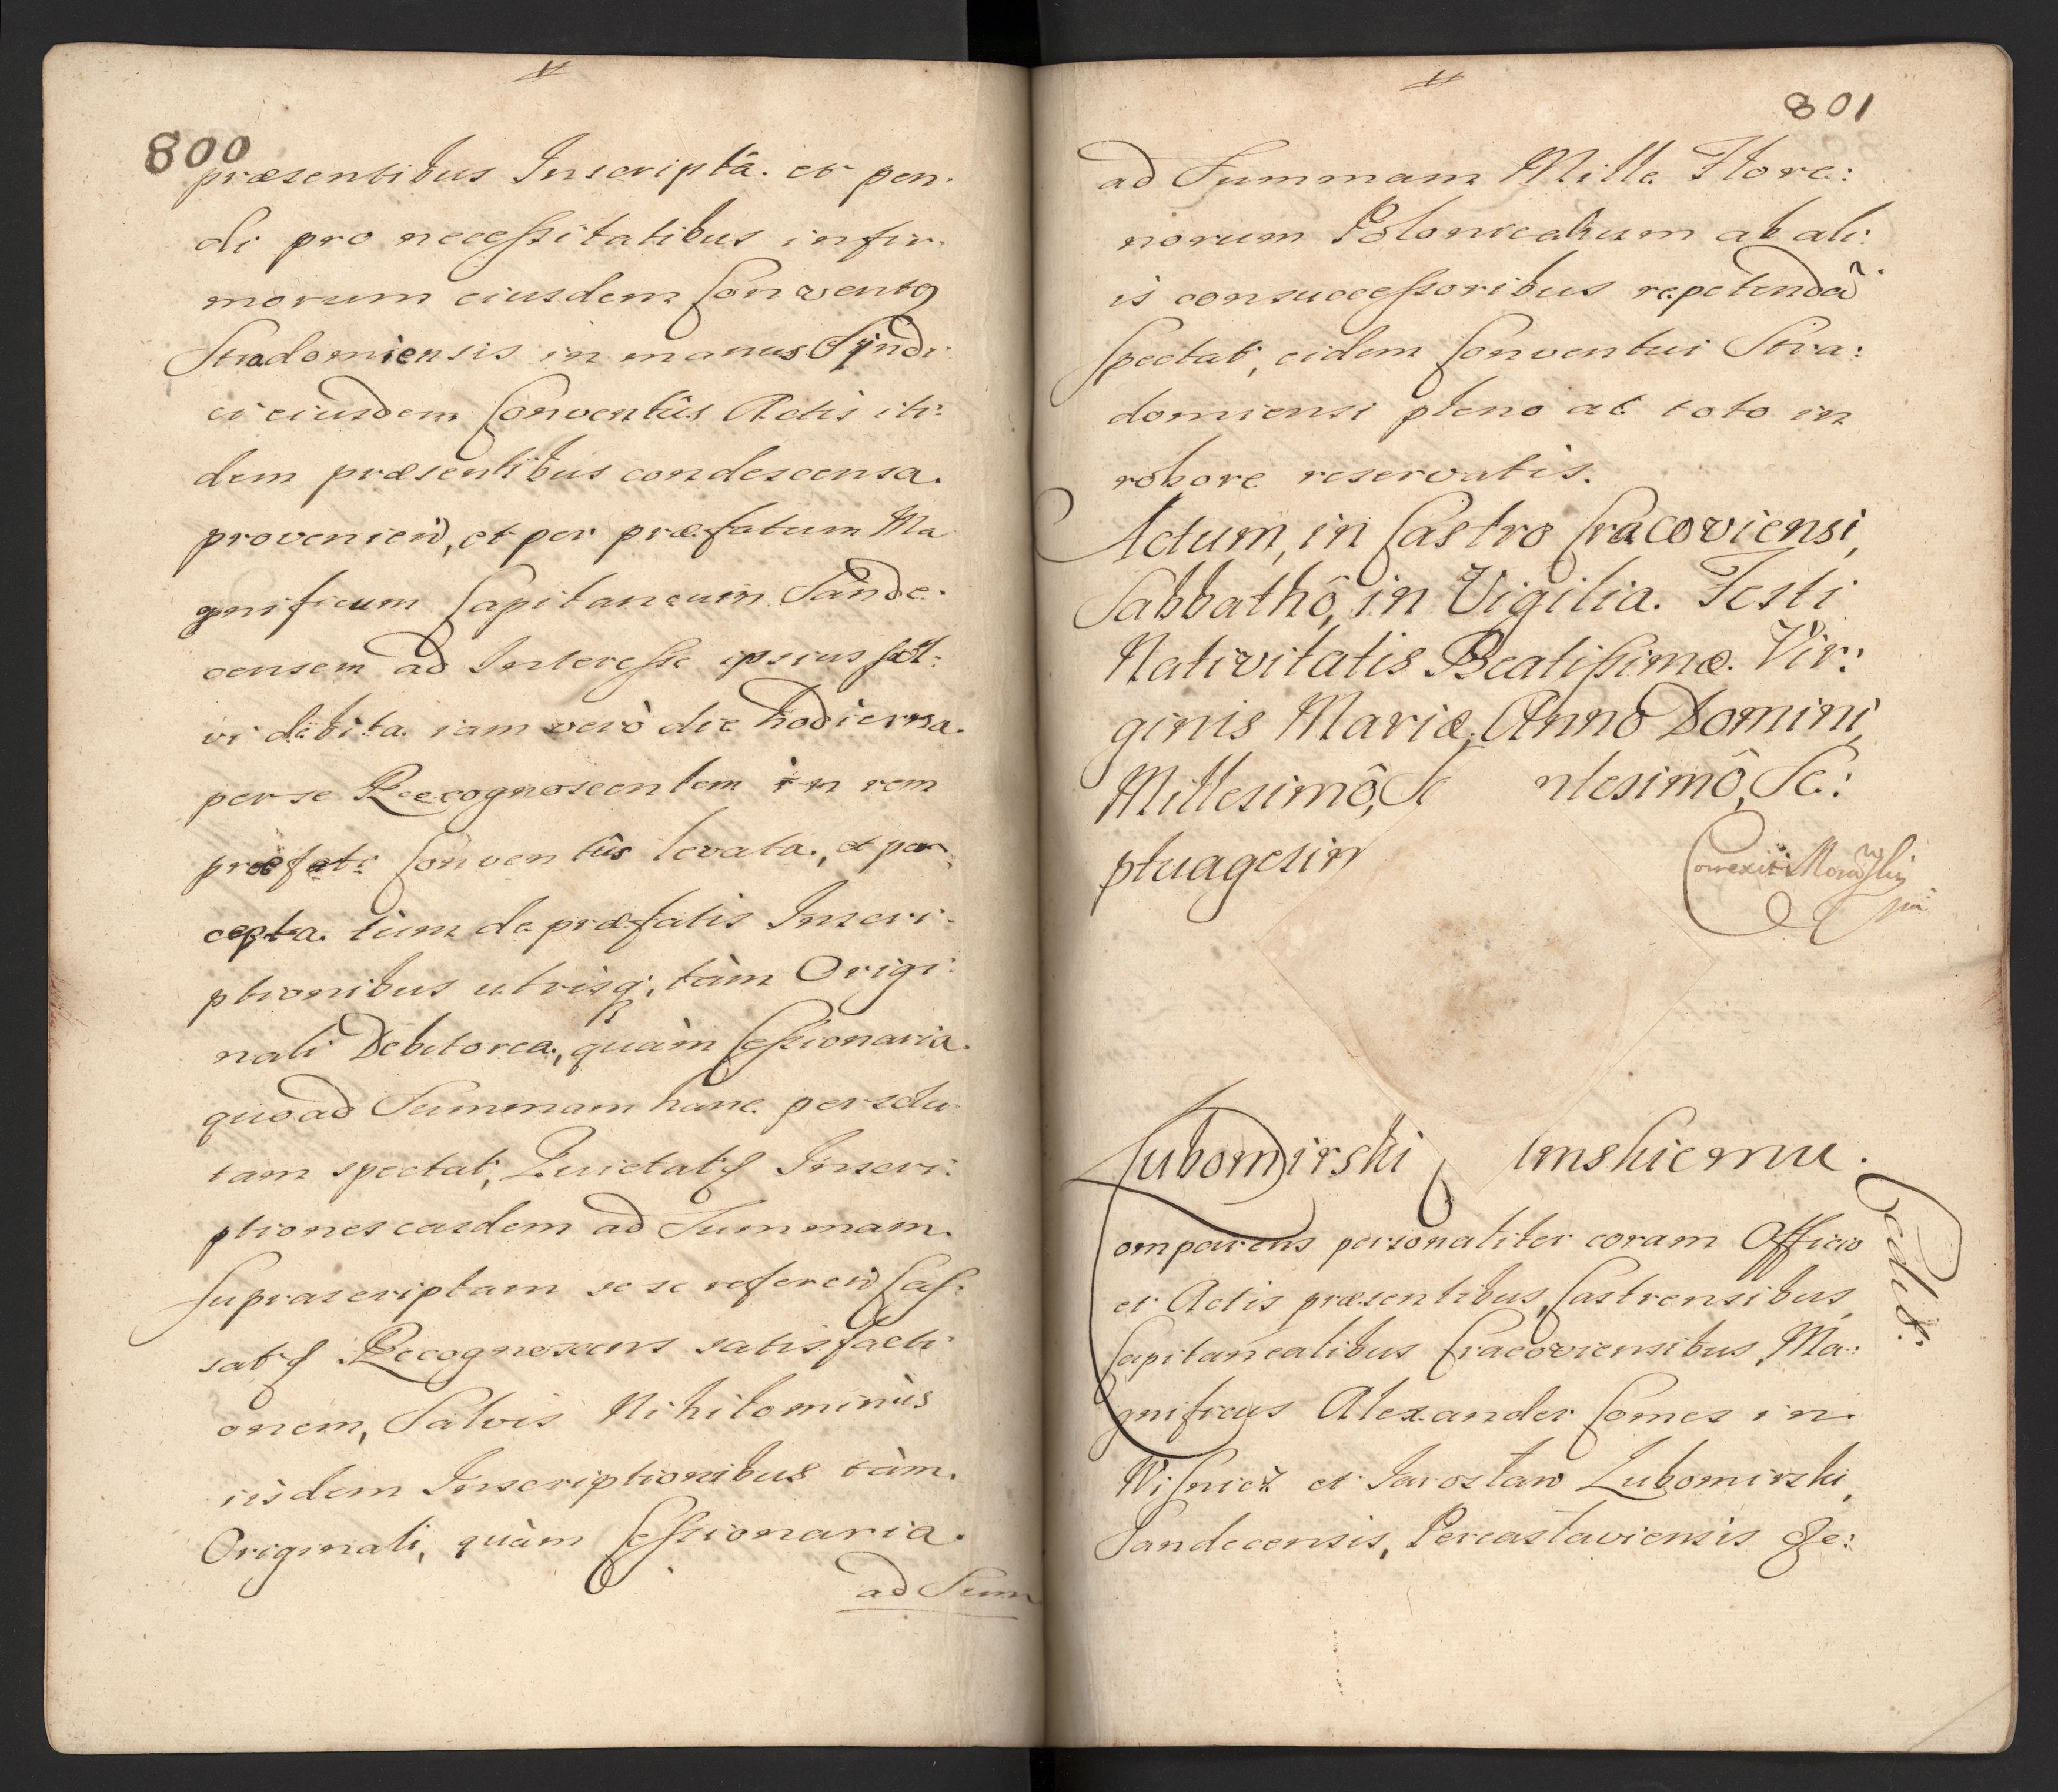 800
præsentibus Inscripta. et pen.
di pro necessitatibus infir.
morum eiusdem Conventq
Stradomiensis in manus Syndi
ci eiusdem Conventûs Actis iti:
dem præsentibus condescensa.
provenien, et per præfatum Ma
gnificum Capitaneum Sande.
censem ad Interesse ipsius sol:
vi debita. iam verò die hodierna.
per se Recognoscentem in rem
præfati Conventûs levata., et per:
cepta. tùm de præfatis Inscri:
ptionibus utrisq, tàm Origi:
nali Debitorea., quàm Cessionaria.
quoad Summam hanc persolu
tam spectat, Quietat, Inscri:
ptiones easdem ad Summam.
suprascriptam se se referen Cas:
sat Recognoscens satisfacti
onem, Salvis Nihilominùs
iisdem Inscriptionibus tàm.
Originali, quàm Cessionaria.
ad Sum
801
ad Summam Mille Flore:
norum Polonicalium ab ali:
is consuccessoribus repetendã
spectat, eidem Conventui Stra:
domiensi pleno ac toto in
robore reservatis.
Actum, in Castro Cracoviensi,
Sabbathô, in Vigilia. Festi
Nativitatis Beatissimæ. Vir:
ginis Mariæ, Anno Domini,
Millesimô, Se ntesimô, Se:
ptuagesim
Correxit
Lubomirski mskiemu.
Cedit.
omparens personaliter coram Officio
et Actis præsentibus, Castrensibus,
Capitanealibus Cracoviensibus, Ma:
gnificus Alexander Comes in.
Wisnicz et Jarosław Lubomirski,
Sandecensis, Pereasłaviensis &c: